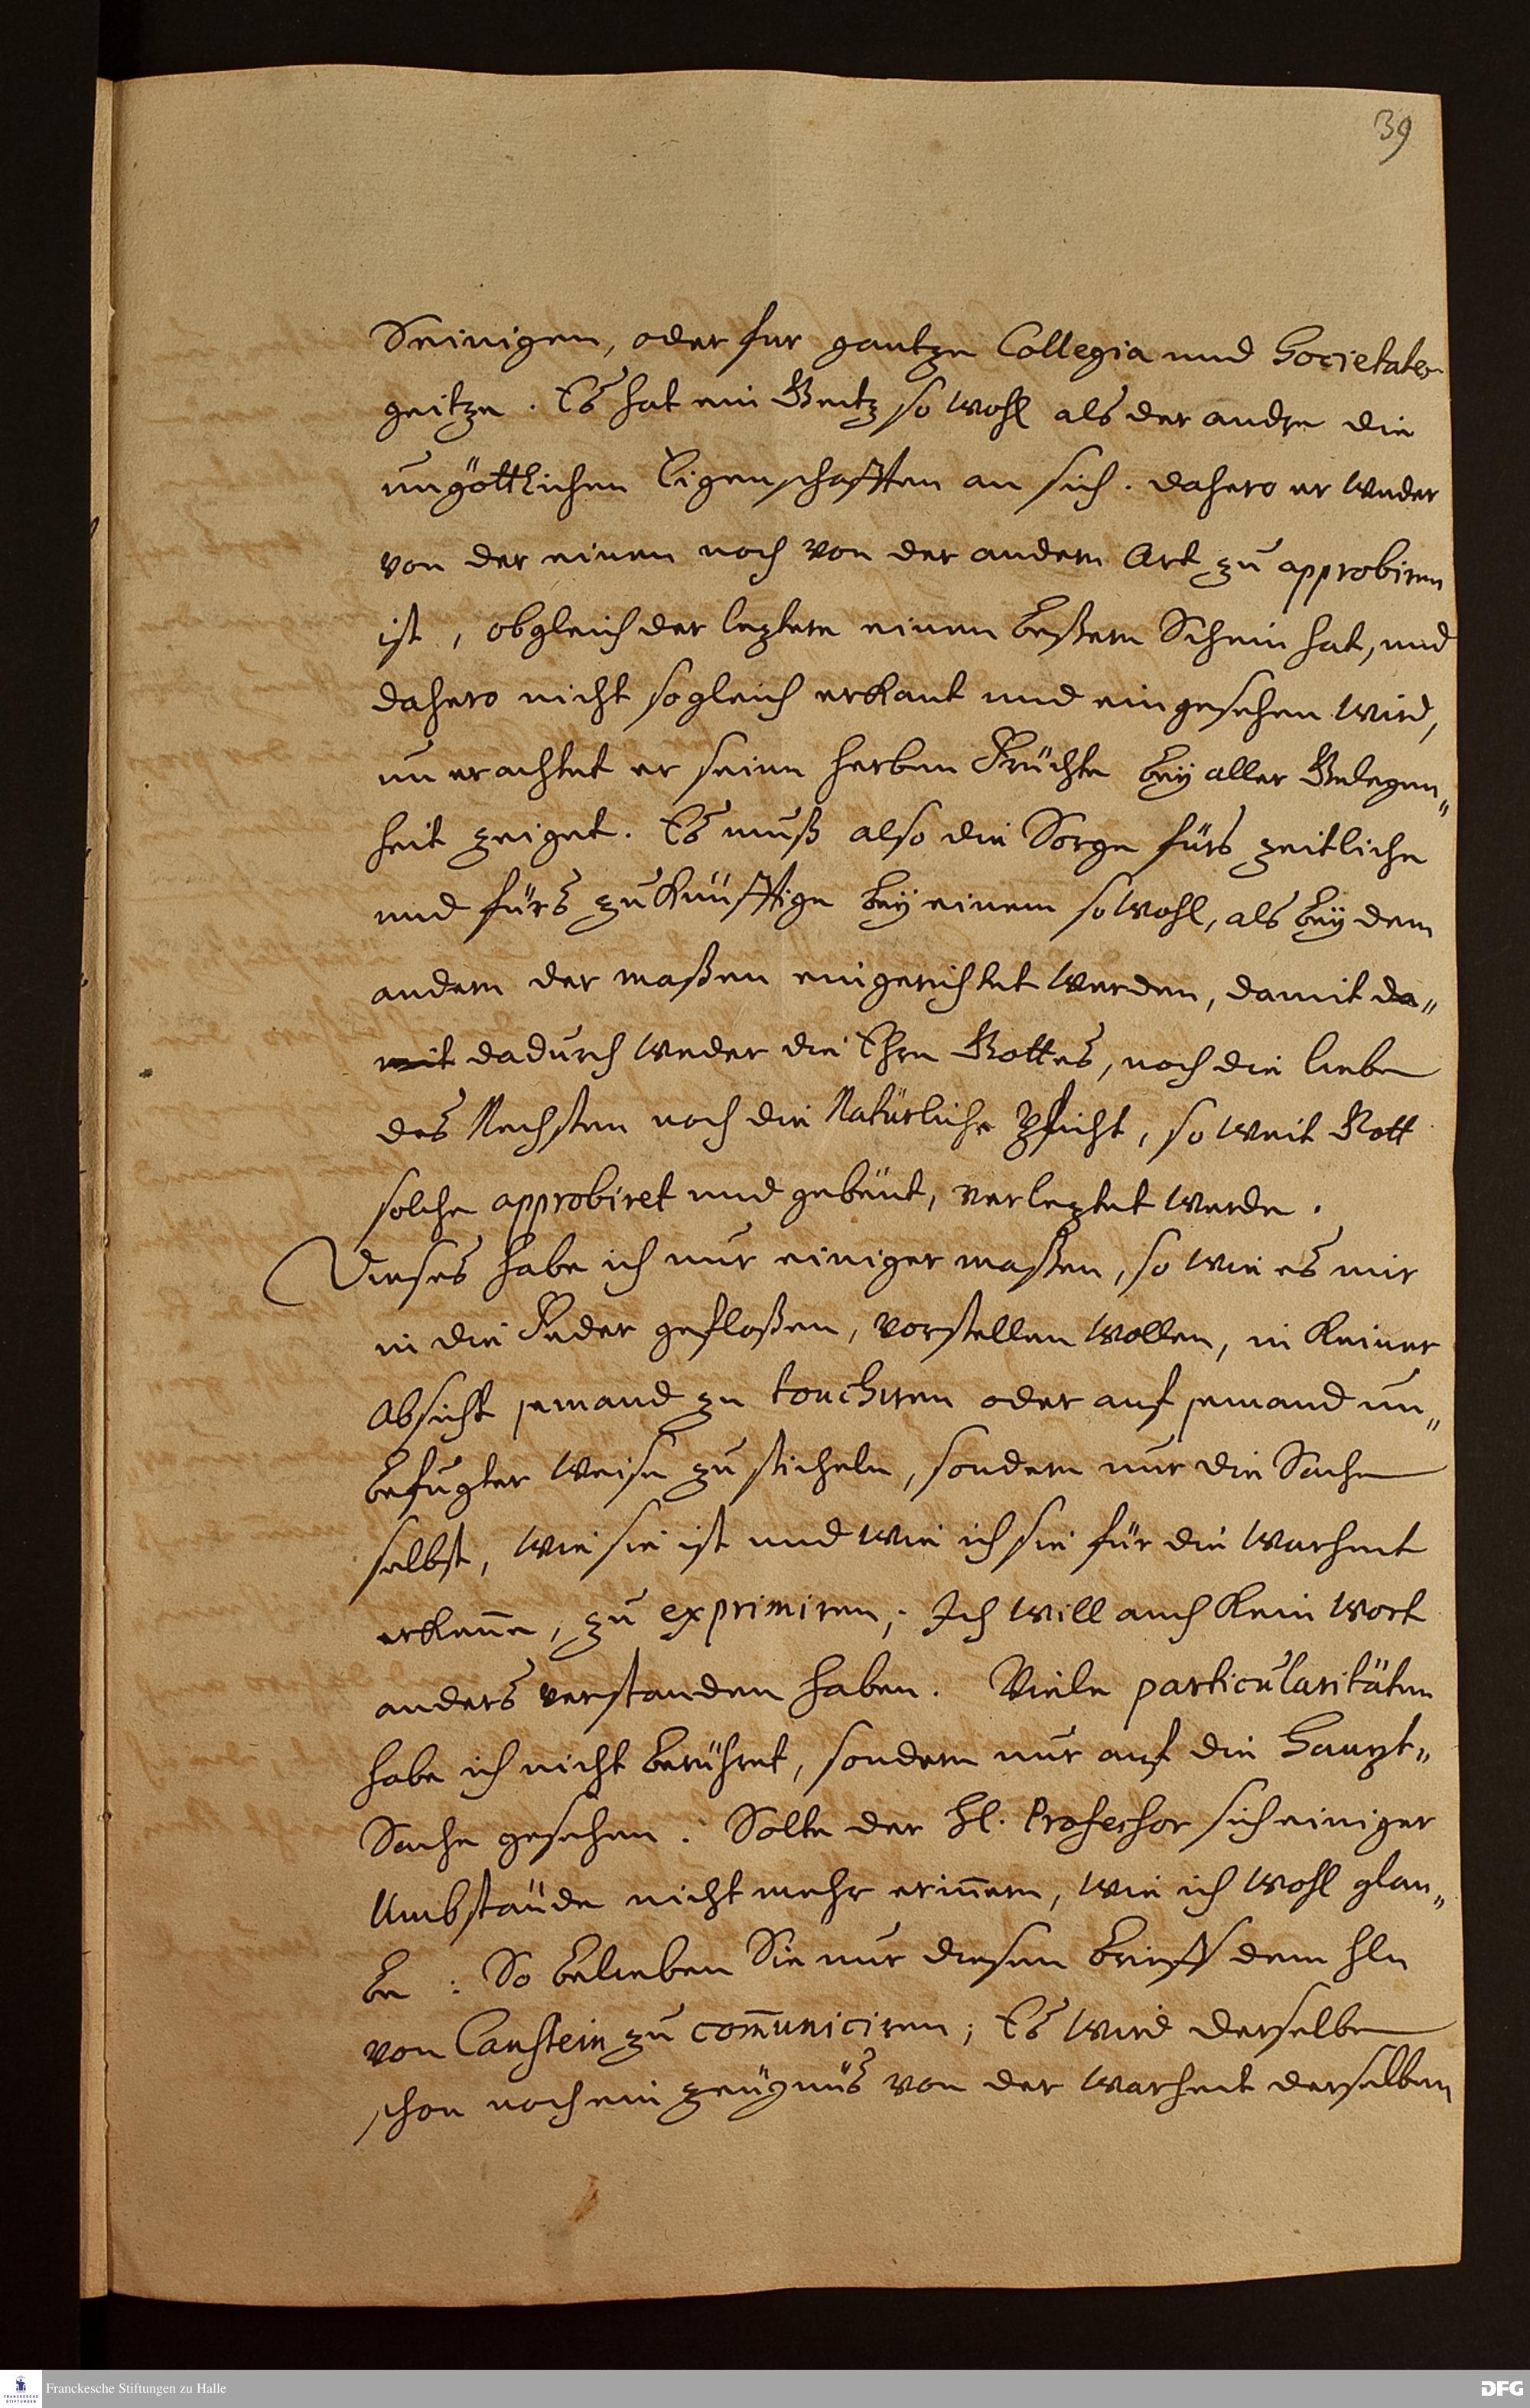 39
Seinigen, oder fur gantze Collegia und Societaten
geitze. Es hat ein Geitz so wohl als der andre die
ungöttlichen Eigenschafften an sich. dahero er weder
von der einen noch von der andern Art zu approbiren
ist, obgleich der leztere einen beßern Schein hat, und
dahero nicht sogleich erkant und eingesehen wird,
unerachtet er seine herben Früchte bey aller Gelegen„
heit zeiget. Es muß also die Sorge fürs zeitliche
und fürs zukünfftige bey einem so wohl, als bey dem
andern der maßen eingerichtet werden, damit da„
mit dadurch weder die Ehre Gottes, noch die liebe
des Nechsten noch die Natürliche Pflicht, so weit Gott
solche approbiret und gebeut, verleztet werde.
Dieses habe ich nur einiger maßen, so wie es mir
in die Feder gefloßen, vorstellen wollen, in keiner
Absicht jemand zu touchiren oder auf jemand un„
befugter Weise zu sticheln, sondern nur die Sache
selbst, wie sie ist und wie ich sie für die Warheit
erkeñe, zu exprimiren; Ich will auch kein Wort
anders verstanden haben. Viele particularitäten
habe ich nicht berühret, sondern nur auf die Haupt„
Sache gesehen. Solte der H. Professor sich einiger
Umbstände nicht mehr eriñern, wie ich wohl glau„
be: So belieben Sie nur diesen brieff dem Hln
von Canstein zu com̃uniciren; Es wird derselbe
schon noch ein zeügnüß von der Warheit derselben
Franckesche Stiftungen zu Halle
FRANCKESCHE
STIFTUNGEN
DFG